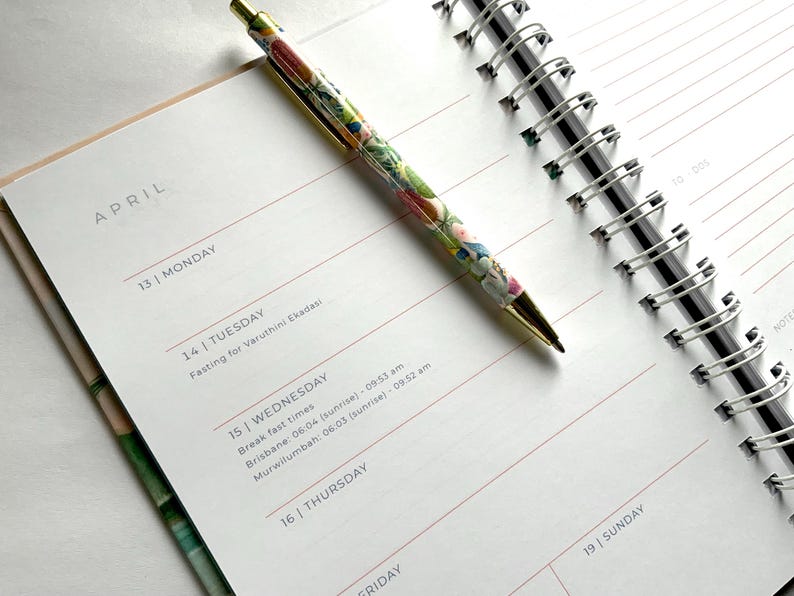 APRIL
13 | MONDAY
14 | TUESDAY
Fasting for Varuthini Ekadasi
15 | WEDNESDAY
Break fast times
Brisbane: 06:04 (sunrise) - 09:53 am
Murwilumbah: 06:03 (sunrise) - 09:52 am
16 | THURSDAY
FRIDAY
19 | SUNDAY
TO - DOS
NOTES